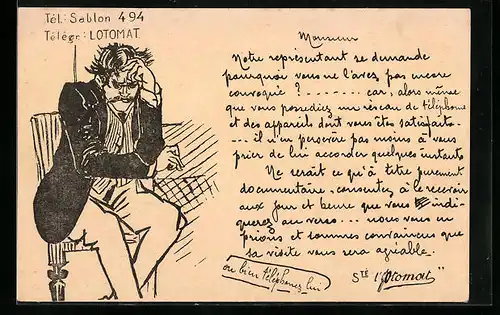 Tél: Sablon 494
Télégr: LOTOMAT
Monsieur
Notre représentant se demande
pourquoi vous ne l'avez pas encore
convoqué ?....... car, alors même
que vous possediez un réseau de téléphone
et des appareils dont vous êtes satisfaits...
... il n'en persévère pas moins à vous
prier de lui accorder quelques instants
Ne serait ce qu'à titre purement
documentaire, consentez à le recevoir
aux jour et heure que vous indi-
querez au verso ... nous vous en
prions et sommes convaincus que
sa visite vous sera agréable.
ou bien téléphonez lui
Sté l'"Otomat"